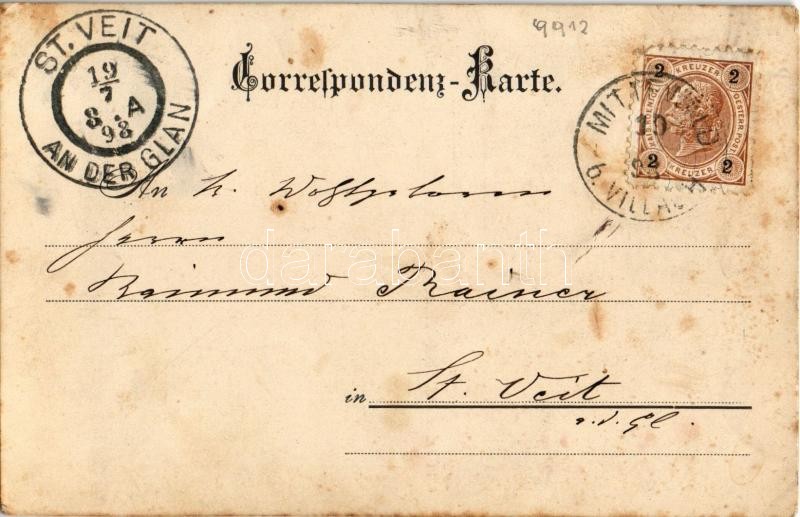 9912
ST. VEIT
19
7
8. A
98
AN DER GLAN
Correspondenz-Karte.
2 KREUZER 2
OESTERR. POST.
2 KREUZER 2
MITT
10
b. VILLA
An
Herrn
Raimund Rainer
in St. Veit
a. d. Gl.
darabanth